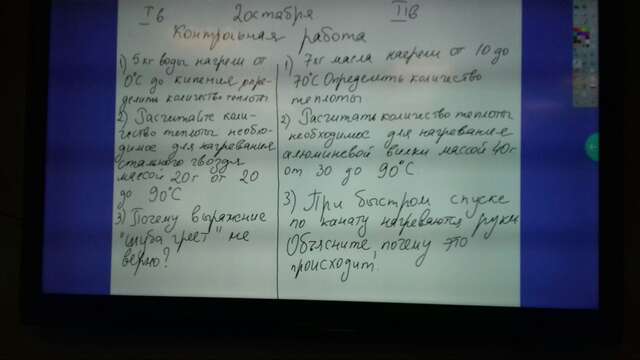 I в 2 октября II В
Контрольная работа
1) 5 кг воды нагрели от
0°С до кипения
делить количество теплоты
2) Рассчитайте коли-
чество теплоты необхо-
димое для нагревания
стального гвоздя
массой 20 г от 20
до 90°С
3) Почему выражение
"шуба греет" не
верно?
1) 7 кг масла нагрели от 10 до
70°С Определить количество
теплоты
2) Расчитать количество теплоты
необходимое для нагревание
алюминевой вилки массой 40 г
от 30 до 90°С
3) При быстром спуске
по канату нагреваются руки
Объясните почему это
происходит!